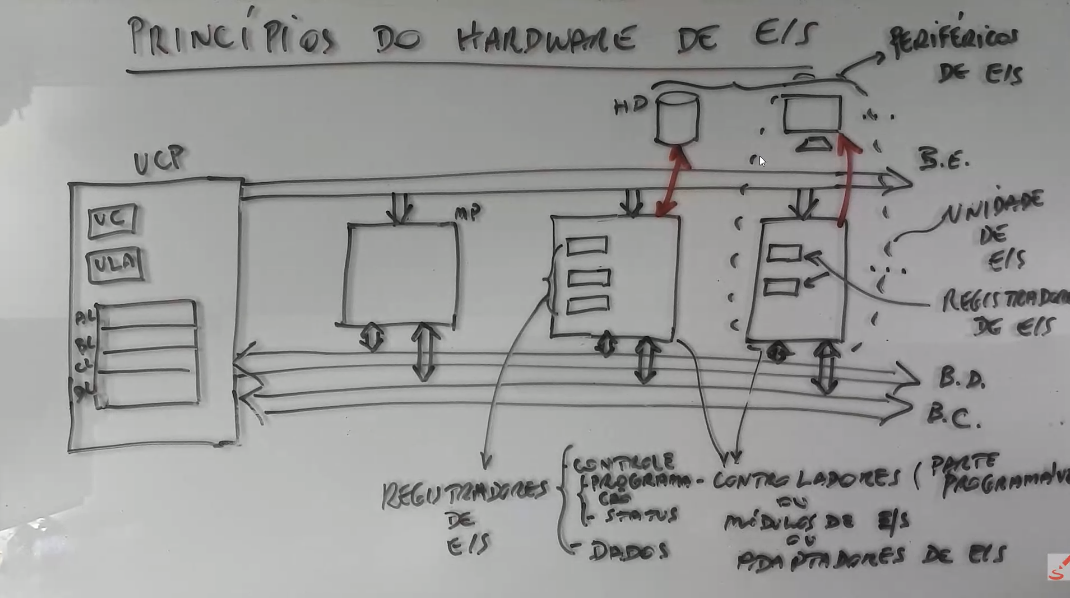 PRINCÍPIOS DO HARDWARE DE E/S
PERIFÉRICOS
DE E/S
HD
UCP
B.E.
UC
MP
UNIDADE
DE
E/S
ULA
REGISTRADOR
DE E/S
AL
BL
CL
DL
B.D.
B.C.
REGISTRADORES
DE
E/S
CONTROLE
- PROGRAMA-
ÇÃO
- STATUS
- DADOS
CONTROLADORES (PARTE
PROGRAMÁV
OU
MÓDULOS DE E/S
OU
ADAPTADORES DE E/S